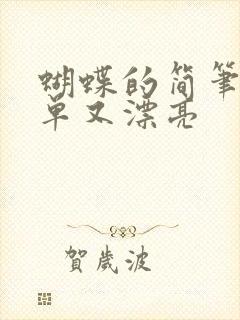 蝴蝶的简笔
单又漂亮
賀歲波